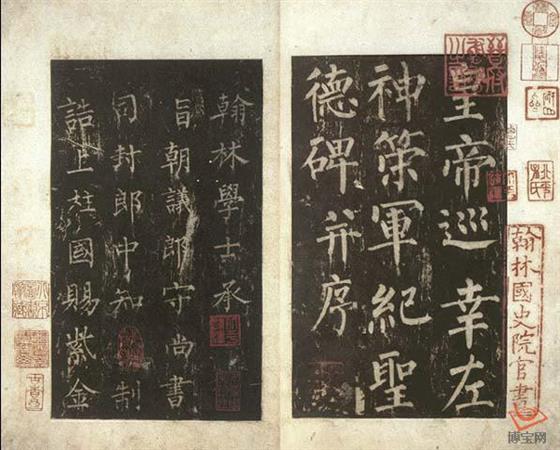 皇帝巡幸左
神策軍紀聖
德碑并序
翰林學士承
旨朝議郎守尚書
司封郎中知制
誥上柱國賜紫金
翰林國史院官書
博宝网